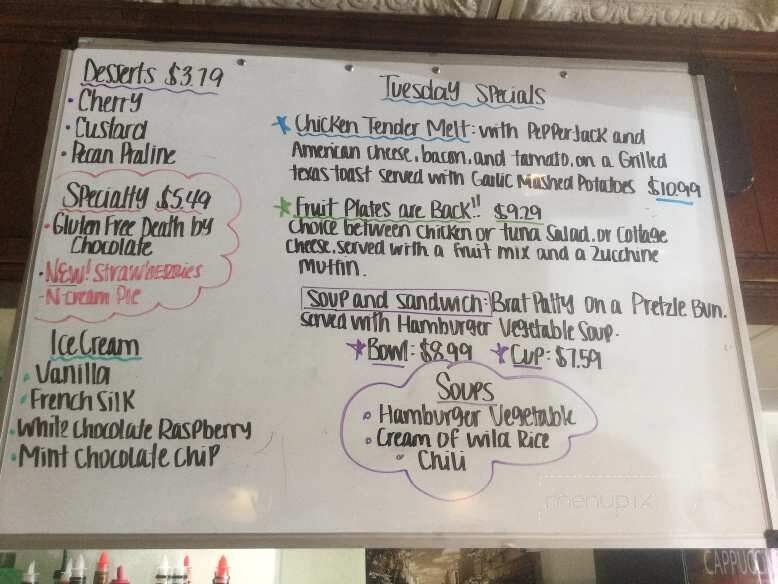 Desserts $3.79
• Cherry
• Custard
• Pecan Praline
Specialty $5.49
• Gluten Free Death by
Chocolate
• NEW! Strawberries
-N-Cream Pie
Ice Cream
• Vanilla
• French Silk
• White Chocolate Raspberry
• Mint Chocolate Chip
Tuesday Specials
Chicken Tender Melt: with PepperJack and
American cheese, bacon, and tamato, on a Grilled
texas toast served with Garlic Mashed Potatoes $10.99
Fruit Plates are Back!! $9.29
Choice between Chicken or tuna Salad, or Cottage
cheese, served with a fruit mix and a Zucchine
Muffin.
Soup and Sandwich: Brat Patty on a Pretzle Bun.
served with Hamburger Vegetable Soup.
Bowl: $8.99 Cup: $7.59
Soups
• Hamburger Vegetable
• Cream of Wild Rice
• Chili
menupix
CAPPUCC